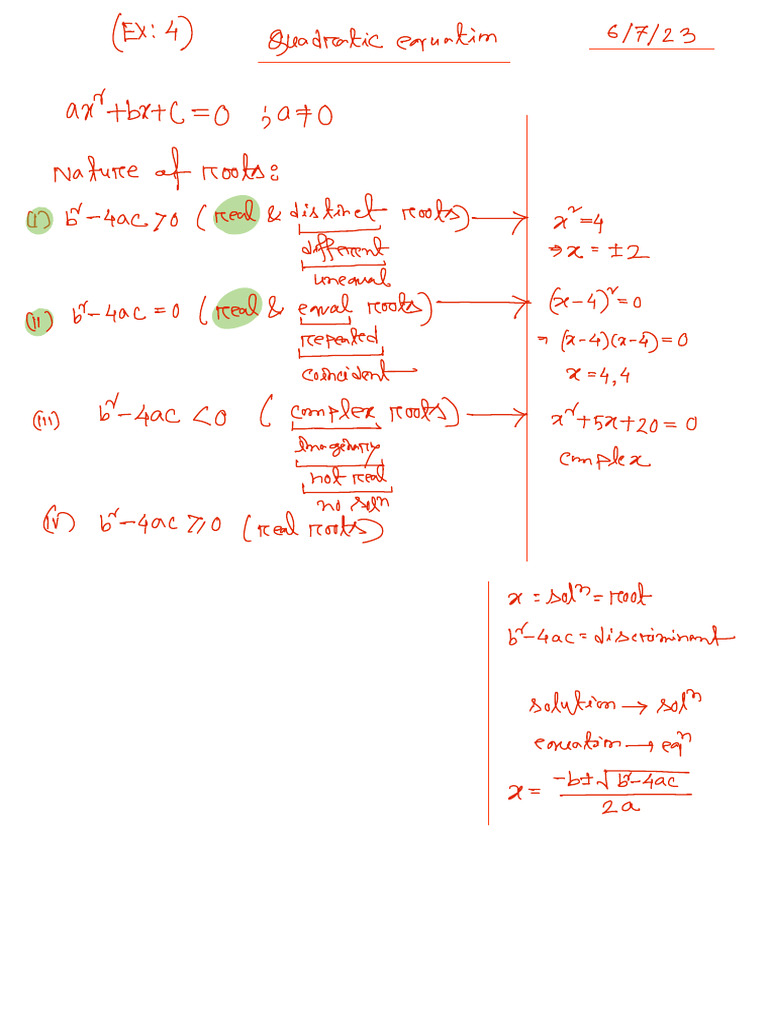 (EX: 4) Quadratic equation 6/7/23
ax²+bx+c=0 ; a≠0
Nature of roots:
(i) b²-4ac>0 (real & distinct roots) → x²=4
different ⇒ x = ±2
unequal
(ii) b²-4ac=0 (real & equal roots) → (x-4)²=0
repeated ⇒ (x-4)(x-4)=0
coincident x=4,4
(iii) b²-4ac<0 (complex roots) → x²+5x+20=0
Imaginary complex
not real
no solⁿ
(iv) b²-4ac⩾0 (real roots)
x = solⁿ = root
b²-4ac = discriminant
solution → solⁿ
equation → eqⁿ
x = (-b±√(b²-4ac))/2a